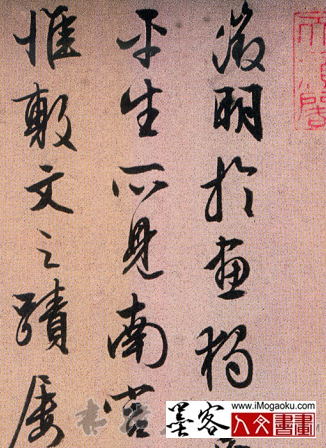 徵明於畫獨
平生所見南宮
惟敷文之蹟屢
www.iMogaoku.com
墨客
人文書畫